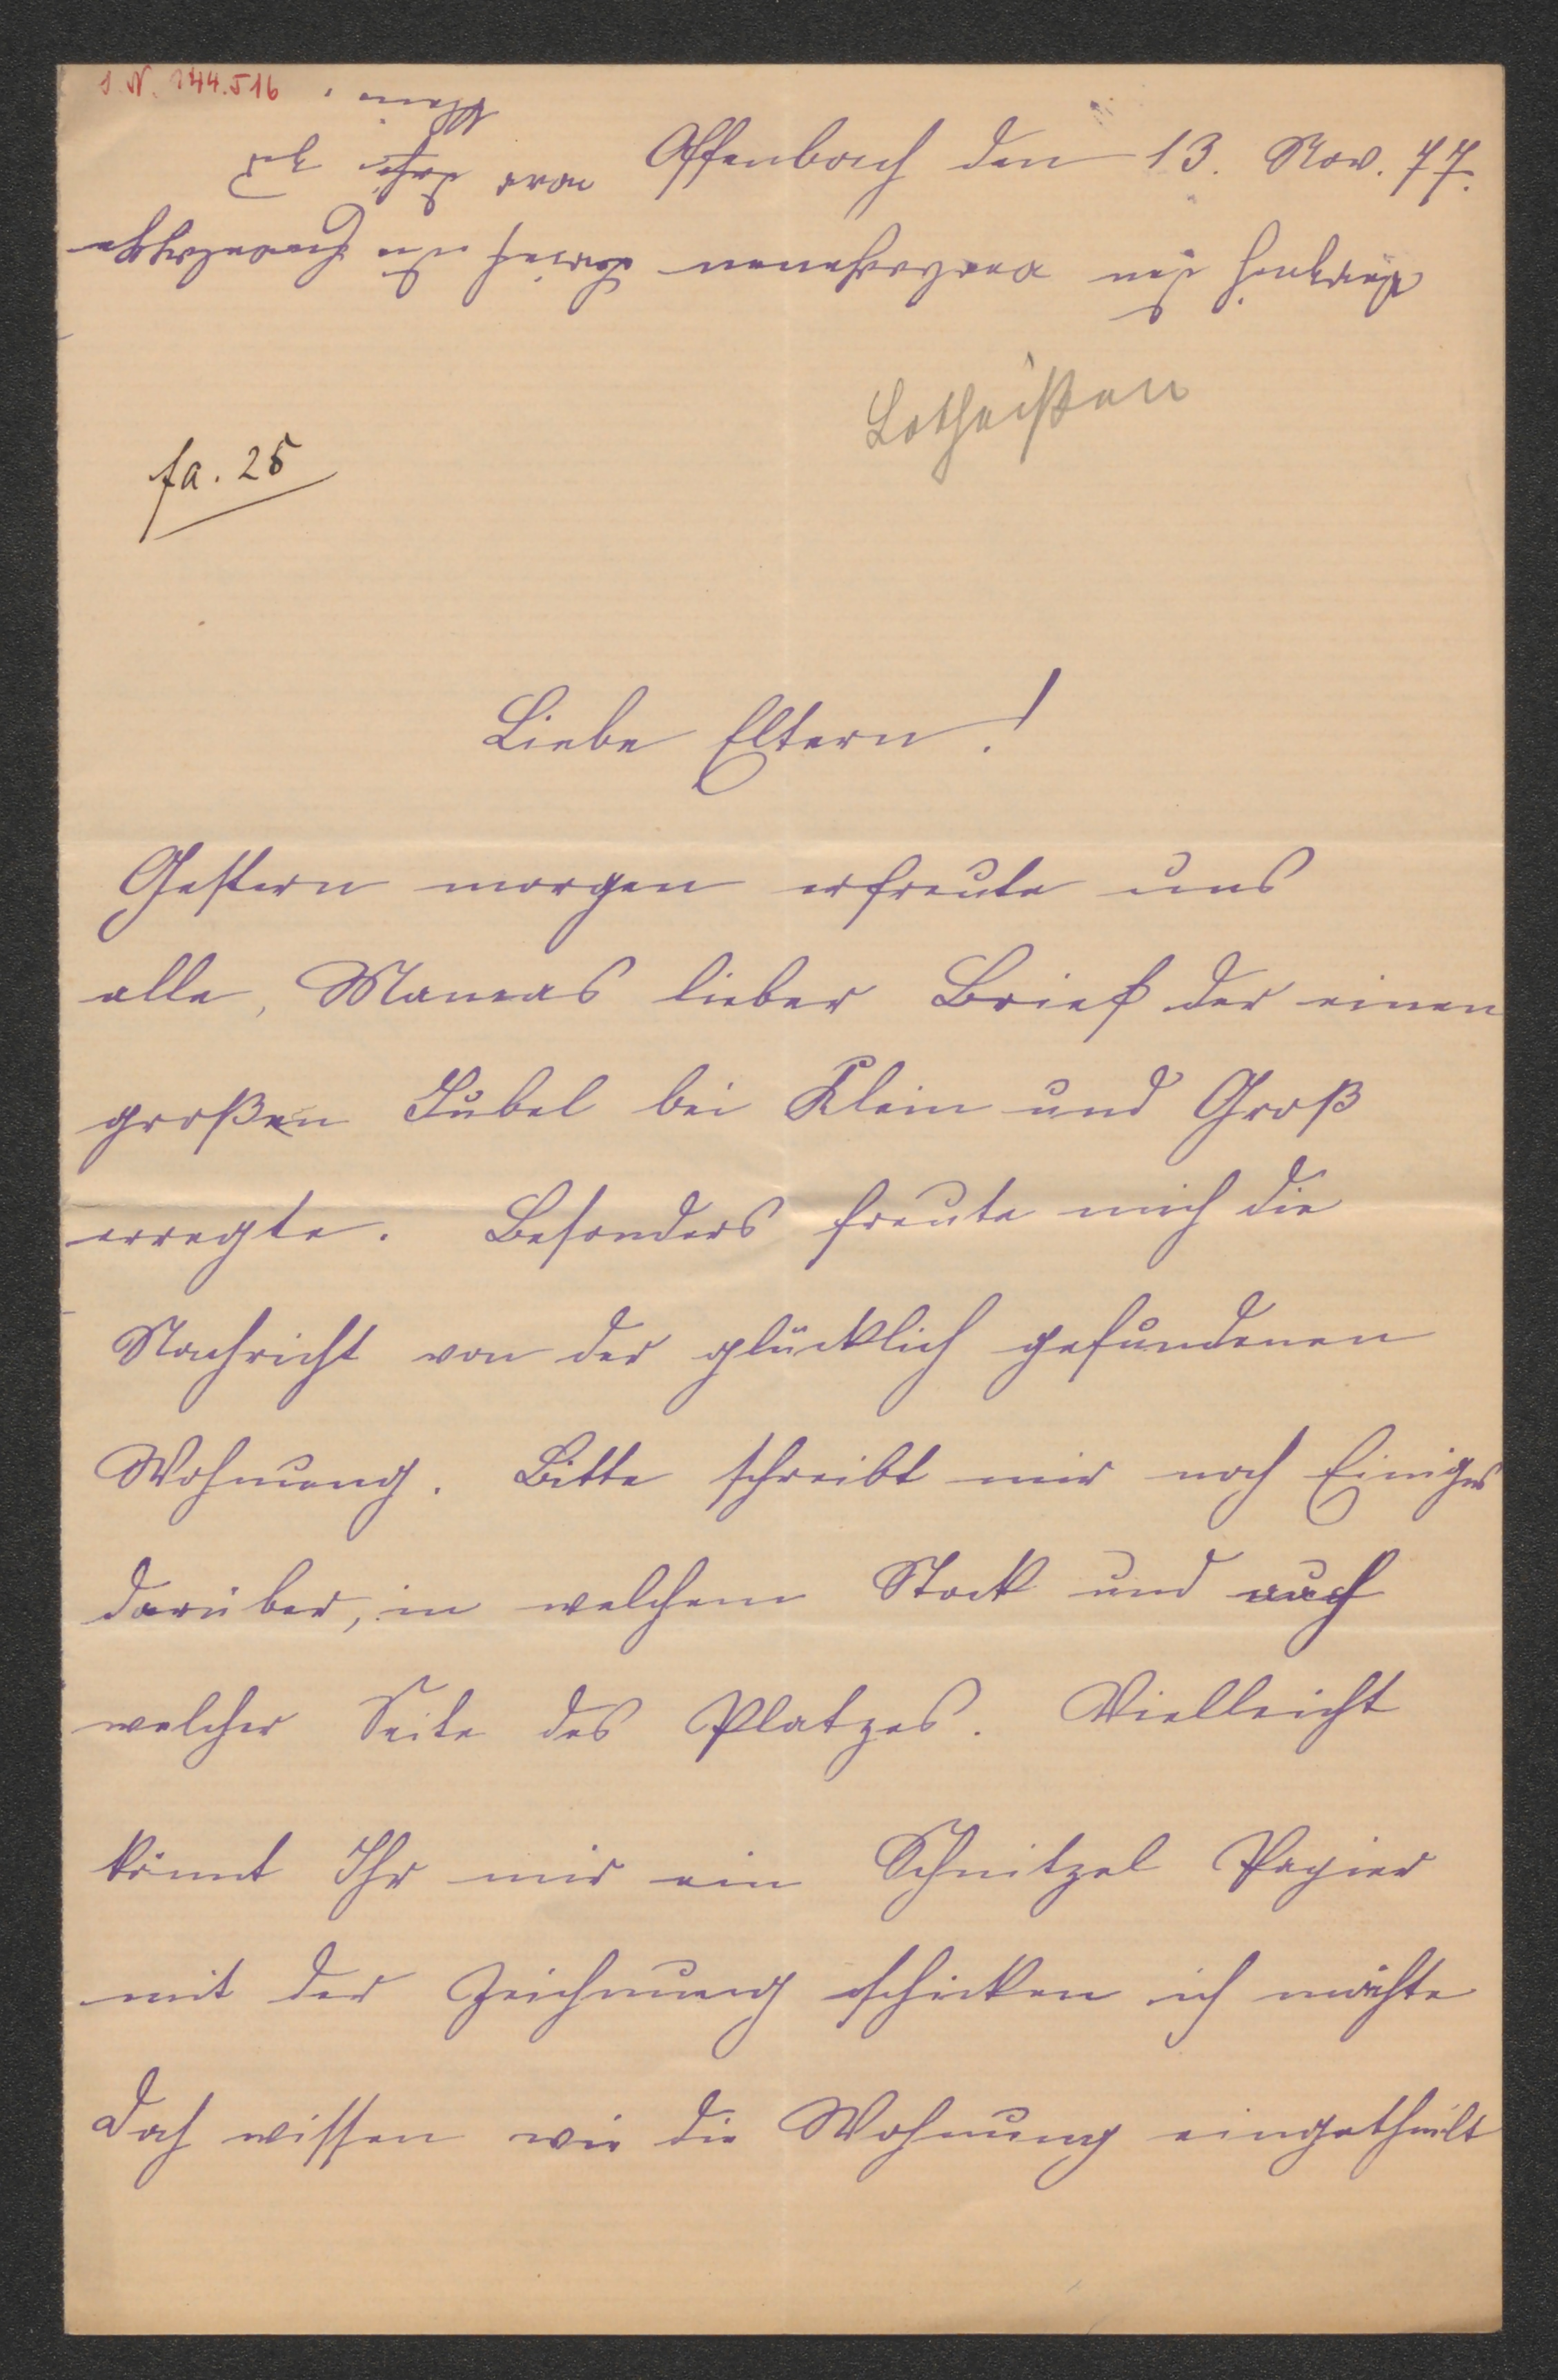 I. N. 244.516
Offenbach den 13. Nov. 77.
Lotheißen
fa. 25
Liebe Eltern!
Gestern morgen erfreute uns
alle, Mamas lieber Brief der einen
großen Jubel bei Klein und Groß
erregte. Besonders freute mich die
Nachricht von der glücklich gefundenen
Wohnung. Bitte schreibt mir noch Einiges
darüber, in welchem Stock und auf
welcher Seite des Platzes. Vielleicht
könnt Ihr mir ein Schnitzel Papier
mit der Zeichnung schicken ich möchte
doch wissen wie die Wohnung eingetheilt